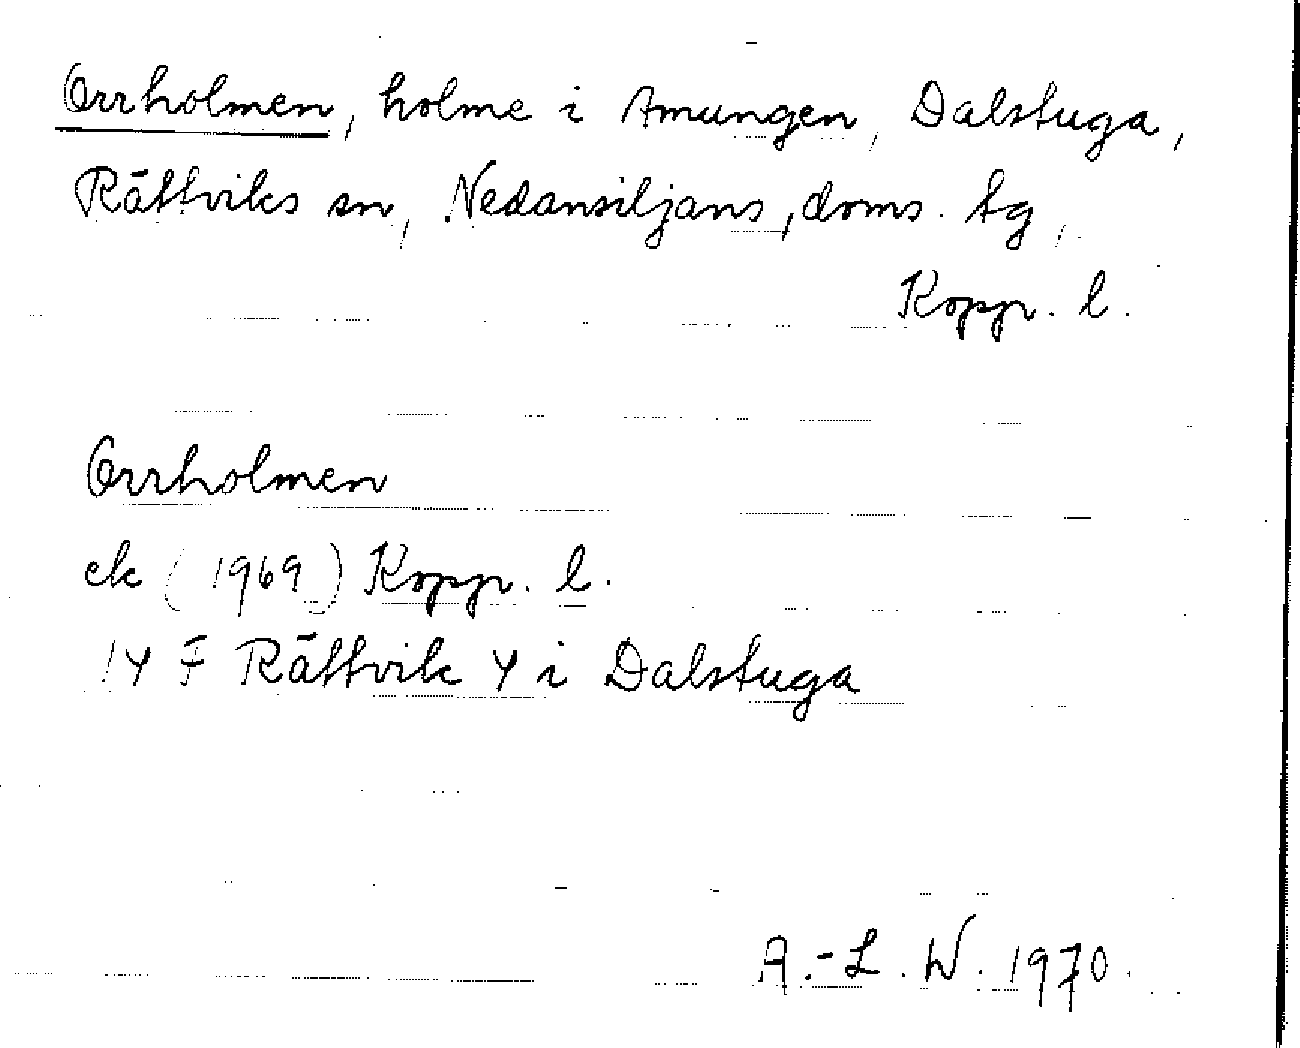 Orrholmen, holme i Amungen, Dalstuga,
Rättviks sn, Nedansiljans, doms. tg,
Kopp. l.
Orrholmen
ek (1969) Kopp. l.
14 F Rättvik 4 i Dalstuga
A.-L. W. 1970.